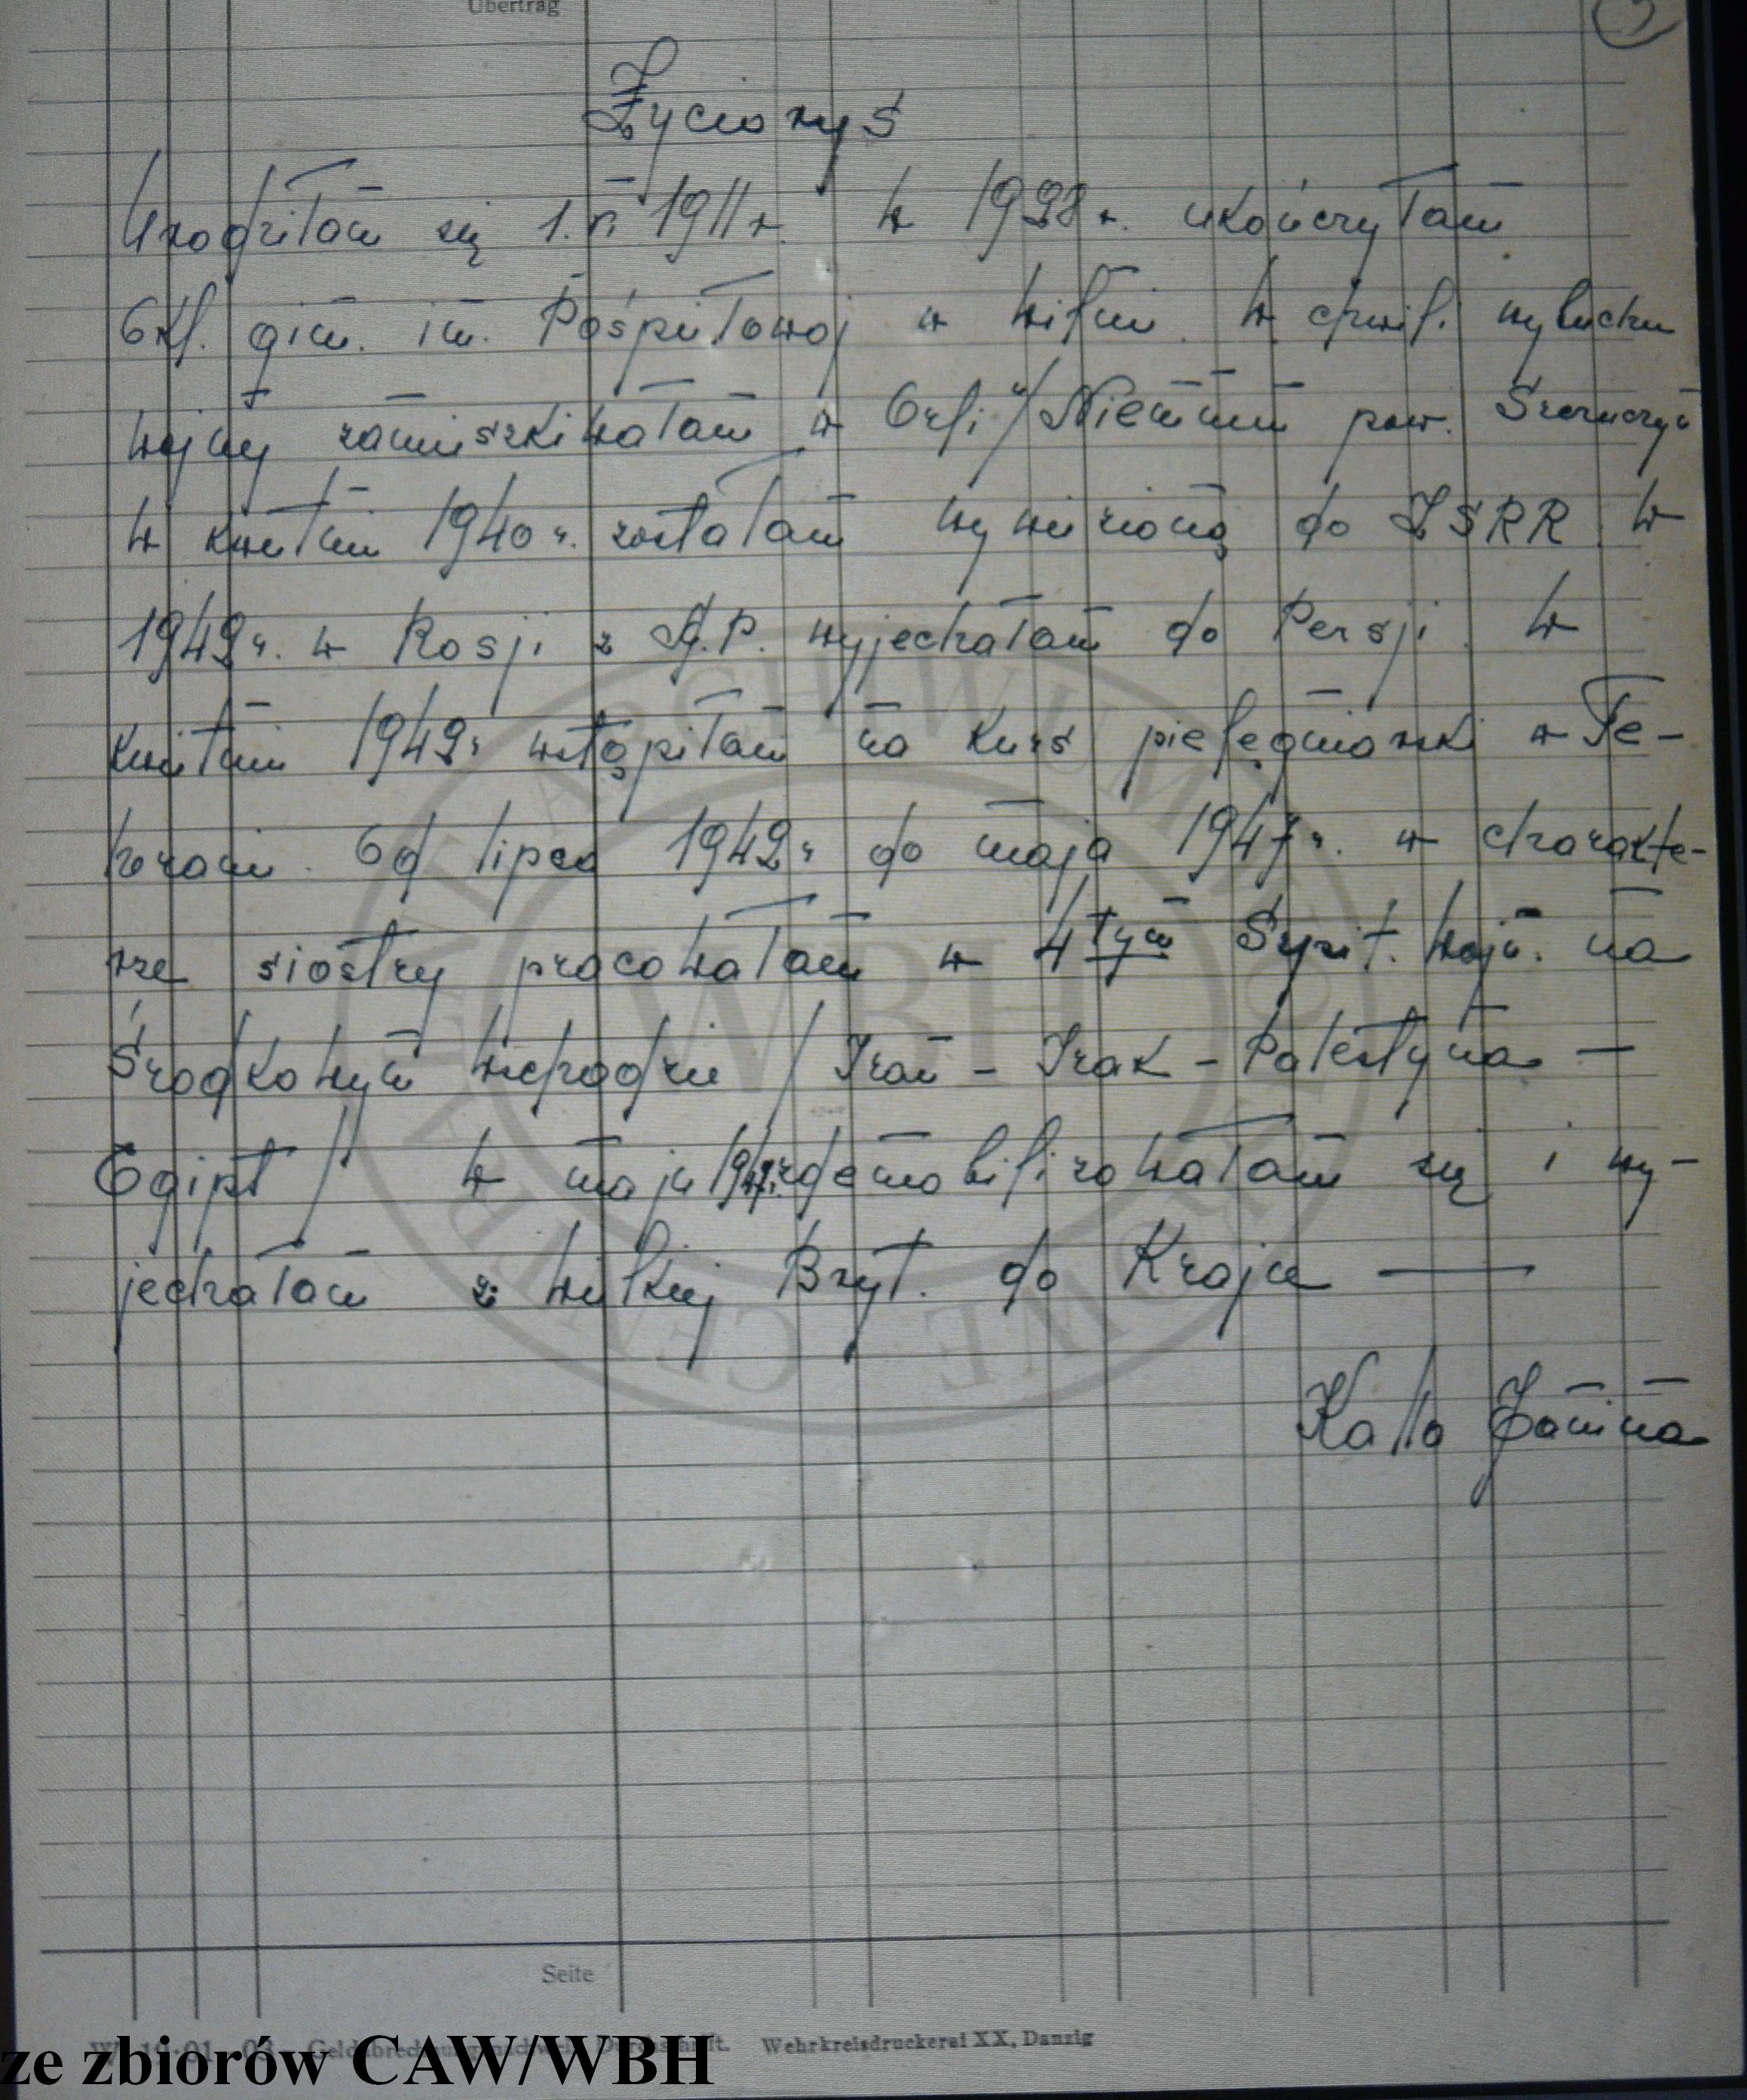 Übertrag
Życiorys
Urodziłam się 1. VI 1911 r. W 1928 r. ukończyłam
6 kl. gim. im. Pośpiełowej w Wilnie. W chwili wybuchu
wojny zamieszkiwałam w Orli n/Niemnem pow. Szczuczyn
W kwietniu 1940 r. zostałam wywieziona do ZSRR. W
1942 r. w Rosji z A.P. wyjechałam do Persji. W
kwietniu 1942 r wstąpiłam na kurs pielęgniarski w Te-
heranie. Od lipca 1942 r do maja 1947 r. w charakte-
rze siostry pracowałam w 4tym Szpit. Woje. na
Środkowym Wschodzie / Iran - Irak - Palestyna -
Egipt / W maju 1947 r. zdemobilizowałam się i wy-
jechałam z Wielkiej Bryt. do Kraju
Kallo Janina
Seite
Wehrkreisdruckerei XX, Danzig
ze zbiorów CAW/WBH